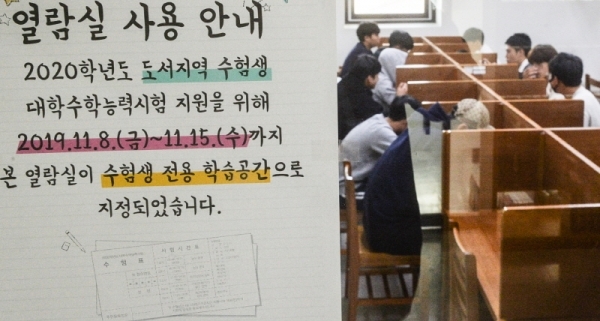 열람실 사용 안내
2020학년도 도서지역 수험생
대학수학능력시험 지원을 위해
2019.11.8.(금)~11.15.(수)까지
본 열람실이 수험생 전용 학습공간으로
지정되었습니다.
수 험 표